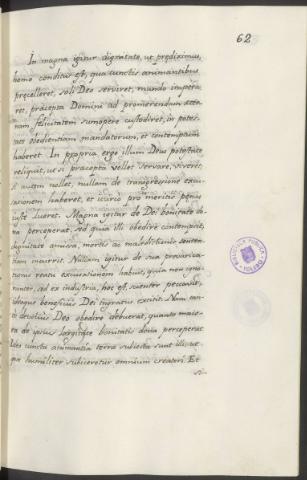 62
In magna igitur dignitate, ut prediximus,
homo conditus est, qua cunctis animantibus
precelleret, soli Deo serviret, mundo impera
ret, præcepta Domini ad promerendum æter
nam felicitatem sumopere custodiret, in potes
obedientiam mandatorum, et contemptum
haberet. In propria ergo illum Deus potestate
reliquit, ut si præcepta vellet servare, viveret;
si autem nollet, nullam de transgressione excu
sationem haberet, et vario pro meritis penis
iste lueret. Magna igitur de Dei bonitate do
na perceperat, sed quia illi obedire contempsit,
dignitate amissa, mortis ac maledictionis senten
tiam incurrit. Nullam igitur de sua prævarica
tionis reatu excusationem habuit, quia non igno
ranter, sed ex industria, hoc est, scienter peccavit,
ideoque beneficiis Dei ingratus extitit. Nam tan
to devotius Deo obedire debuerat, quanto maio
ra de ipsius largitate bonitatis dona perceperat
cuncta animantia terræ subiecta sunt illi, ut
ipse humiliter subiiceretur omnium creatori. Et
si-
BIBLIOTECA PUBLICA
TOLEDO